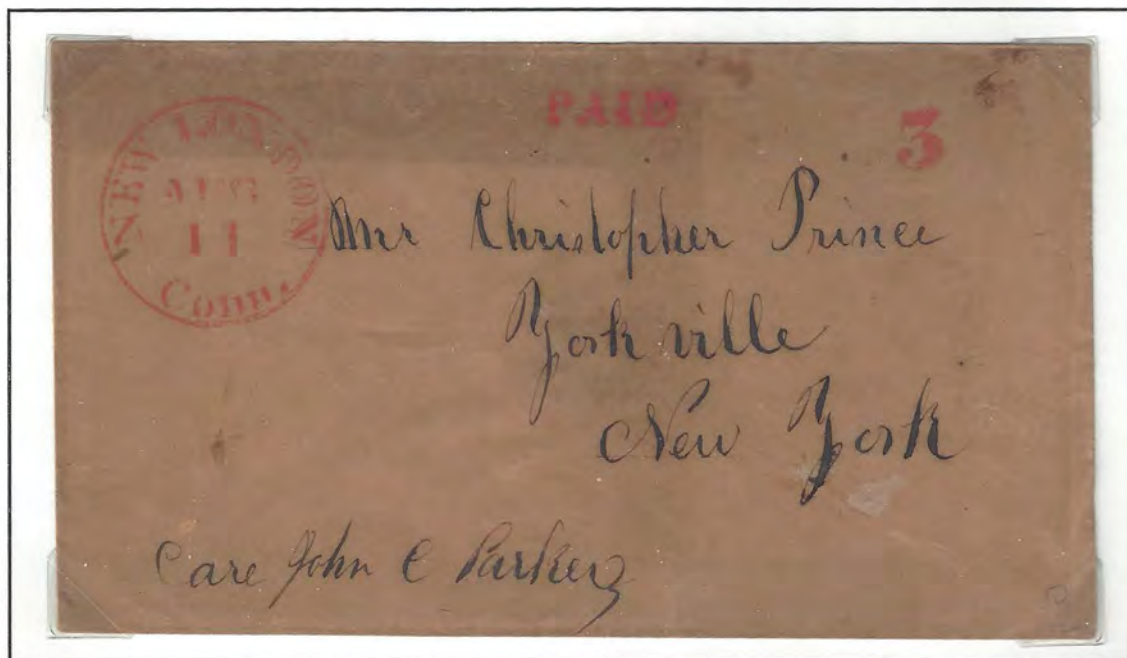 PAID
3
NEW LONDON
AUG
11
Conn.
Mr Christopher Prince
Yorkville
New York
Care John C Parker